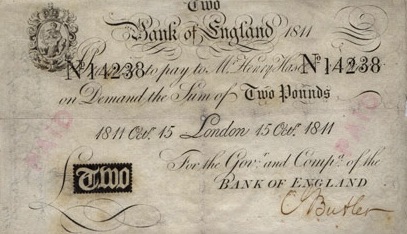 Two
Bank of England 1811
Nº14238 to pay to Mr. Henry Hase Nº14238
on Demand the Sum of Two Pounds
1811 Octr. 15 London 15 Octr. 1811
For the Govr. and Compa. of the
BANK OF ENGLAND
£ Two
C Butler